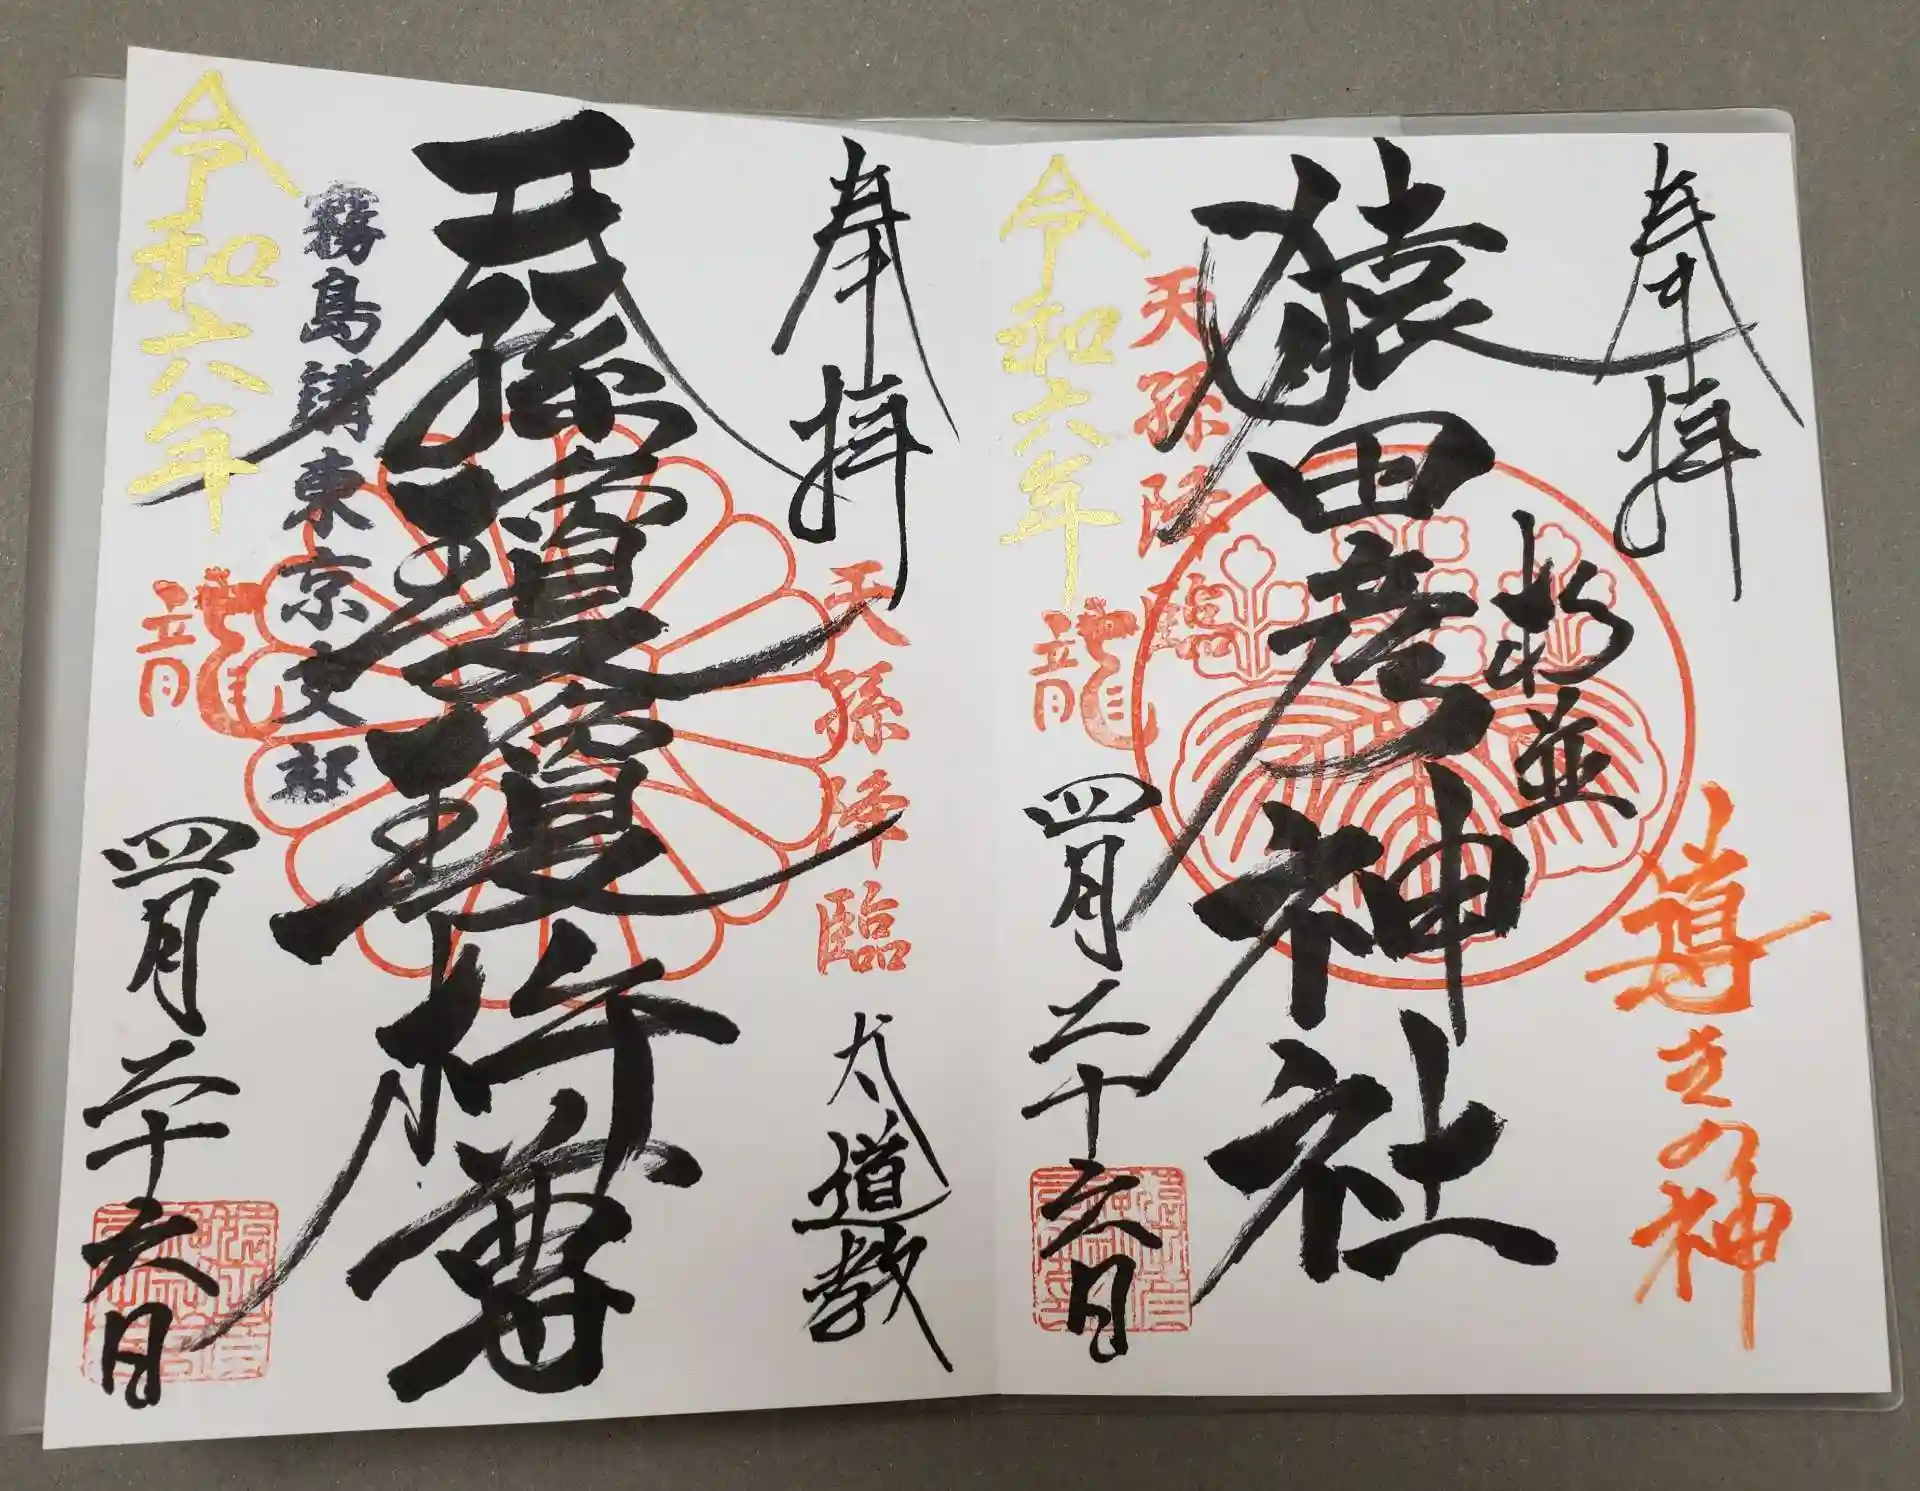 奉拝
導きの神
杉並
猿田彦神社
天孫降臨
令和六年
龍
四月二十六日
奉拝
天孫降臨
大道教
天孫瓊瓊杵尊
霧島講東京支部
令和六年
龍
四月二十六日